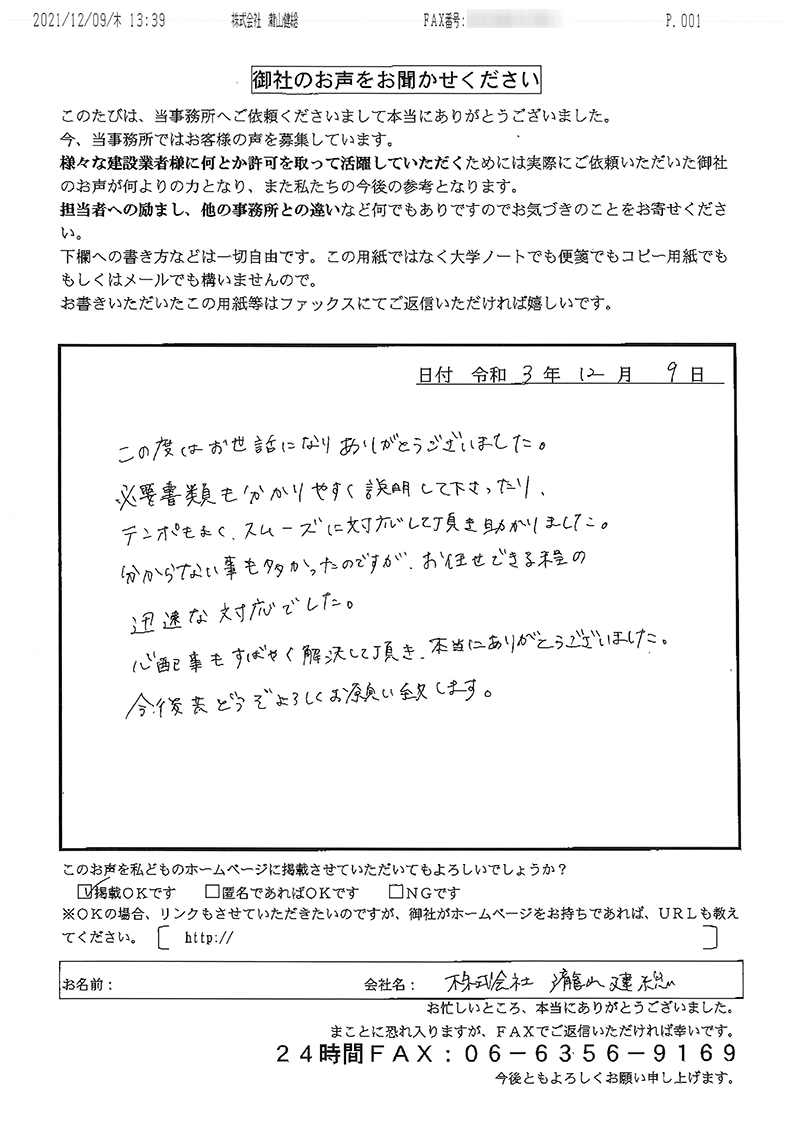 2021/12/09/木 13:39 株式会社 瀧山健総 FAX番号: P.001
御社のお声をお聞かせください
このたびは、当事務所へご依頼くださいまして本当にありがとうございました。
今、当事務所ではお客様の声を募集しています。
様々な建設業者様に何とか許可を取って活躍していただくためには実際にご依頼いただいた御社
のお声が何よりの力となり、また私たちの今後の参考となります。
担当者への励まし、他の事務所との違いなど何でもありですのでお気づきのことをお寄せくださ
い。
下欄への書き方などは一切自由です。この用紙ではなく大学ノートでも便箋でもコピー用紙でも
もしくはメールでも構いませんので。
お書きいただいたこの用紙等はファックスにてご返信いただければ嬉しいです。
日付 令和 3 年 12 月 9 日
この度はお世話になりありがとうございました。
必要書類も分かりやすく説明して下さったり、
テンポもよく、スムーズに対応して頂き助かりました。
分からない事も多かったのですが、お任せできる程の
迅速な対応でした。
心配事もすばやく解決して頂き、本当にありがとうございました。
今後共どうぞよろしくお願い致します。
このお声を私どものホームページに掲載させていただいてもよろしいでしょうか?
☑掲載OKです □匿名であればOKです □NGです
※OKの場合、リンクもさせていただきたいのですが、御社がホームページをお持ちであれば、URLも教え
てください。 [ http:// ]
お名前: 会社名: 株式会社 瀧山建総
お忙しいところ、本当にありがとうございました。
まことに恐れ入りますが、FAXでご返信いただければ幸いです。
24時間FAX:06-6356-9169
今後ともよろしくお願い申し上げます。